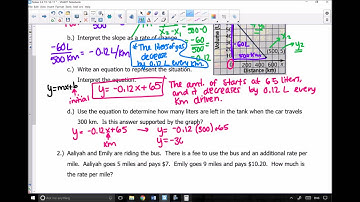 x₂ - x₁
500-0
-60L
500 km = -0.12 L/km
-60
500
-0.12
b.) Interpret the slope as a rate of change.
*The liters of gas decreases by 0.12 L every
60L
500
(500, 5)
0 200 400 600
Distance (km)
c.) Write an equation to represent the situation.
Interpret the equation.
y=mx+b
initial
y = -0.12x + 65
The amt. of starts at 65 liters,
and it decreases by 0.12 L every
km driven.
d.) Use the equation to determine how many liters are left in the tank when the car travels
300 km. Is this supported by the graph?
y = -0.12x+65 → y = -0.12(300)+65
km
y = -36
2.) Aaliyah and Emily are riding the bus. There is a fee to use the bus and an additional rate per
mile. Aaliyah goes 5 miles and pays $7. Emily goes 9 miles and pays $10.20. How much is
the rate per mile?